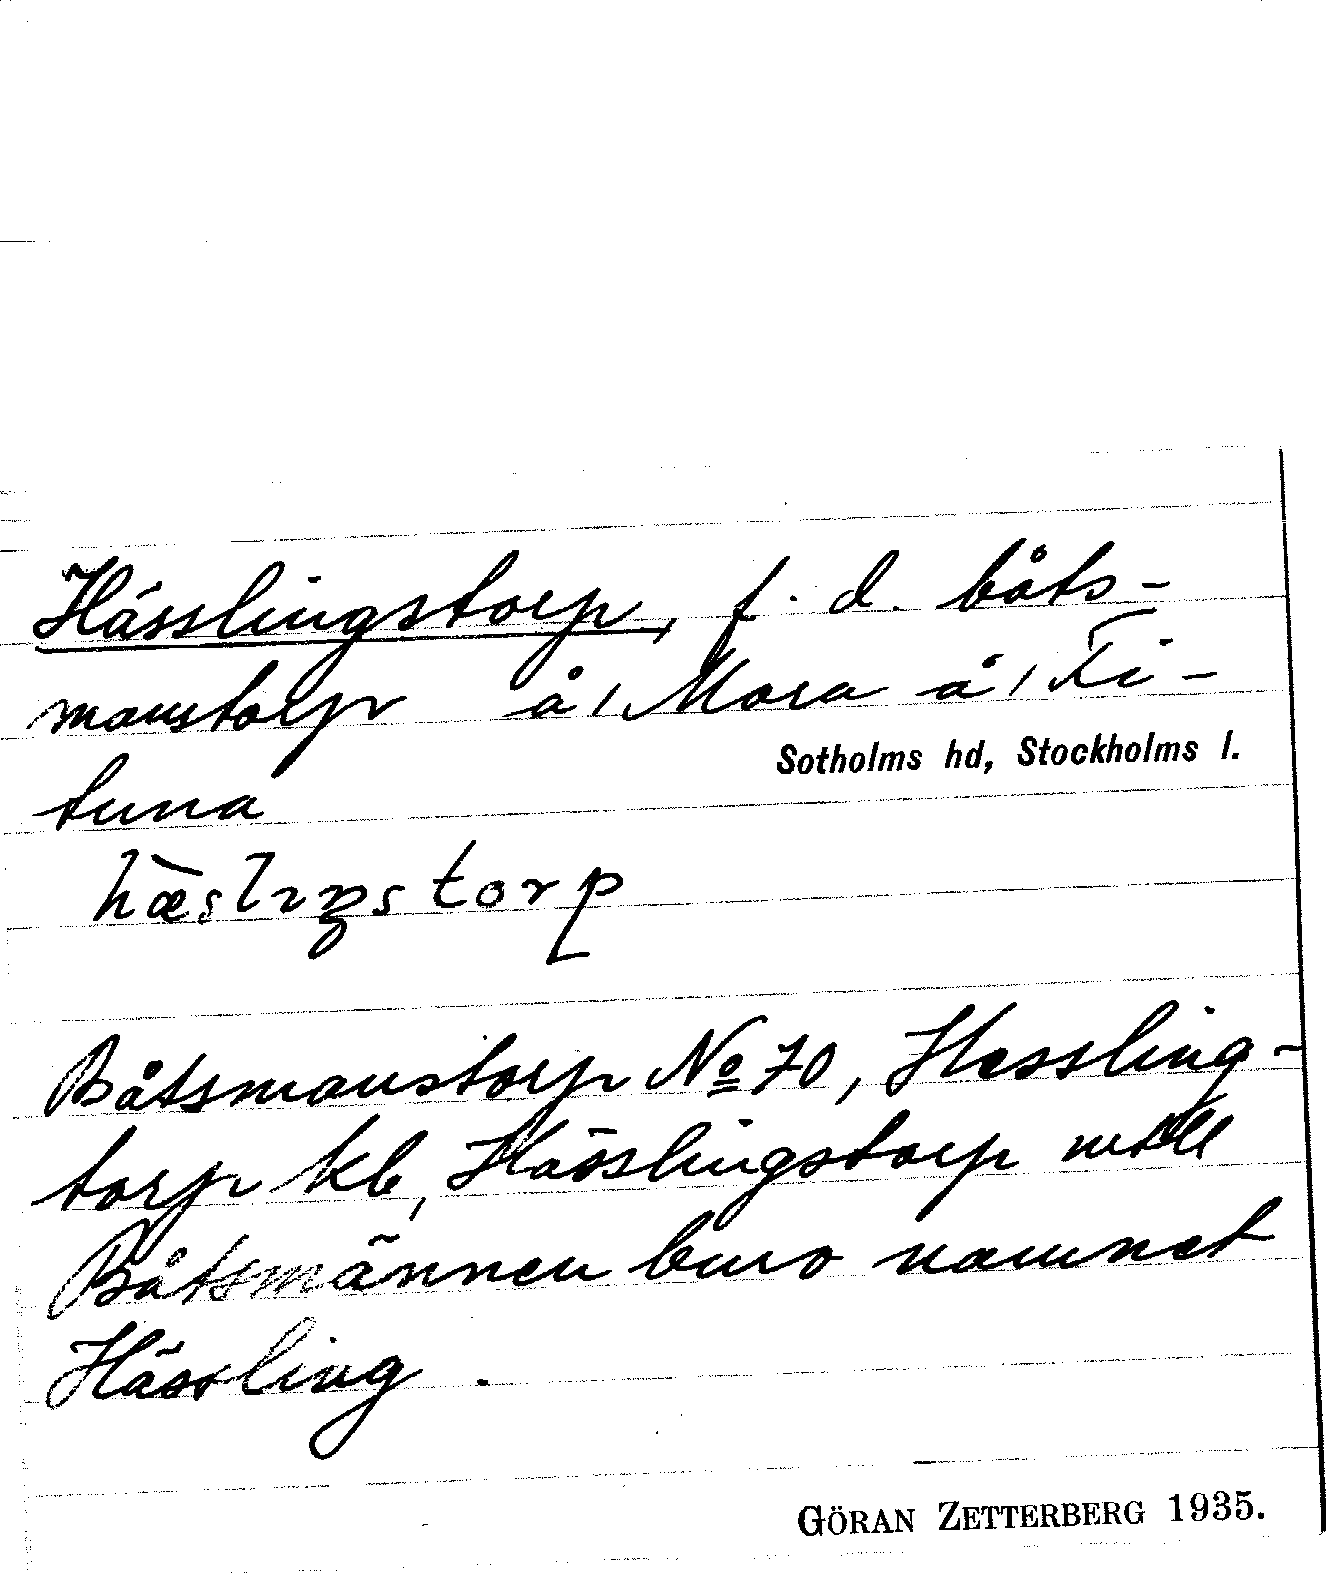 Hässlingstorp, f. d. båts-
manstorp å, Mora å, Ti-
Sotholms hd, Stockholms l.
tuna
hæslıŋstorp
Båtsmanstorp No 70, Hessling-
torp kb, Hässlingstorp
Båtsmännen buro namnet
Hässling.
GÖRAN ZETTERBERG 1935.